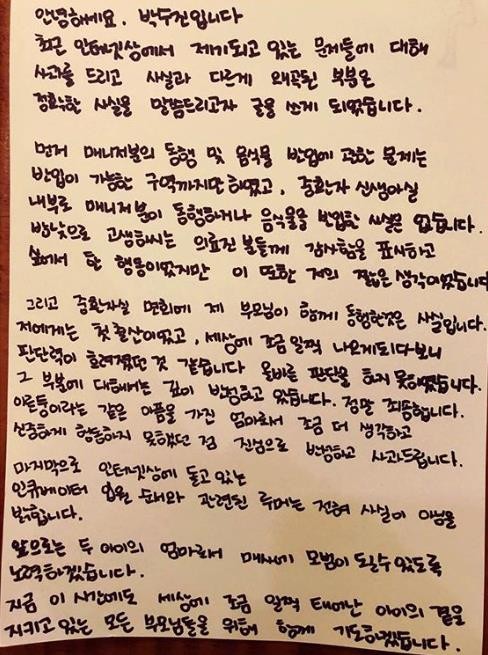 안녕하세요. 박수진입니다
최근 인터넷상에서 제기되고 있는 문제들에 대해
사과를 드리고 사실과 다르게 왜곡된 부분은
정확한 사실을 말씀드리고자 글을 쓰게 되었습니다.
먼저 매니저분의 동행 및 음식물 반입에 관한 문제는
반입이 가능한 구역까지만 하였고, 중환자 신생아실
내부로 매니저분이 동행하거나 음식물을 반입한 사실은 없습니다.
밤낮으로 고생하시는 의료진 분들께 감사함을 표시하고
싶어서 한 행동이었지만 이 또한 저의 짧은 생각이었습니다
그리고 중환자실 면회에 제 부모님이 함께 동행한것은 사실입니다.
저에게는 첫 출산이었고, 세상에 조금 일찍 나오게되다보니
판단력이 흐려졌던 것 같습니다 올바른 판단을 하지 못하였습니다.
그 부분에 대해서는 깊이 반성하고 있습니다. 정말 죄송합니다.
이른둥이라는 같은 아픔을 가진 엄마로서 조금 더 생각하고
신중하게 행동하지 못했던 점 진심으로 반성하고 사과드립니다.
마지막으로 인터넷상에 돌고 있는
인큐베이터 입원 순서와 관련된 루머는 전혀 사실이 아님을
밝힙니다.
앞으로는 두 아이의 엄마로서 매사에 모범이 도실수있도록
노력하겠습니다.
지금 이 시간에도 세상에 조금 일찍 태어난 아이의 곁을
지키고 있는 모든 부모님들을 위해 함께 기도하겠습니다.